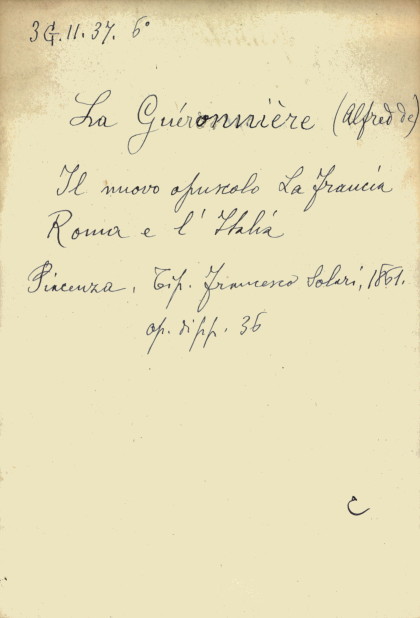 3G.11.37. 6°
La Guéronnière (Alfred de)
Il nuovo opuscolo La Francia
Roma e l' Italia
Piacenza, Tip. Francesco Solari, 1861.
op. di pp. 36
C